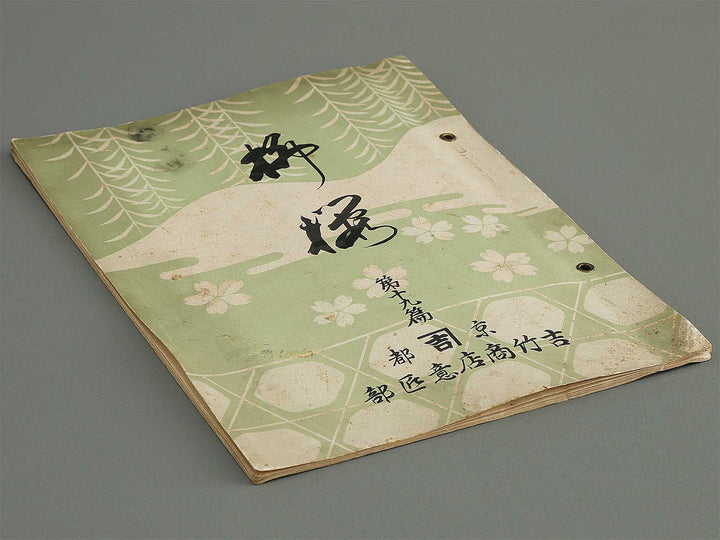 柳
桜
第十九篇
京都
吉
吉竹商店意匠部